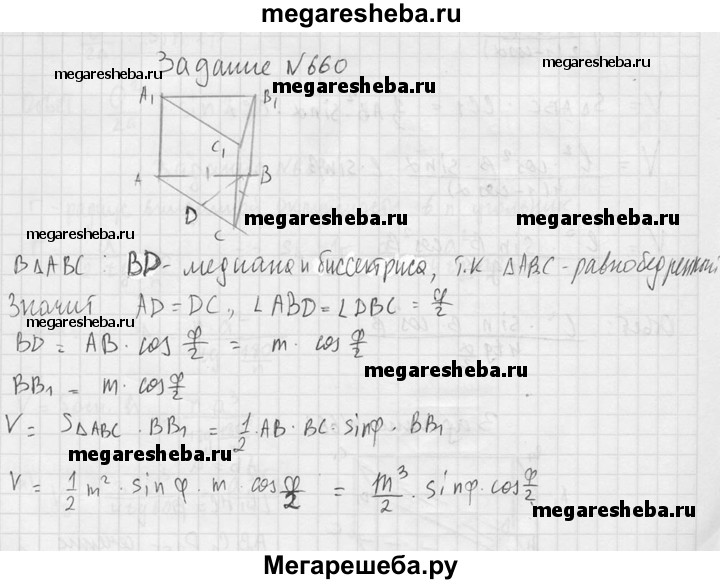 megaresheba.ru
Задание №660
megaresheba.ru
megaresheba.ru
megaresheba.ru
A₁ B₁
C₁
A B
D
C
megaresheba.ru
megaresheba.ru
megaresheba.ru
В ΔABC : BD - медиана и биссектриса, т.к ΔABC - равнобедренный
Значит AD = DC, ∠ABD = ∠DBC = φ/2
megaresheba.ru
BD = AB · cos φ/2 = m · cos φ/2
BB₁ = m · cos φ/2
megaresheba.ru
V = S ΔABC · BB₁ = 1/2 · AB · BC · sinφ · BB₁
megaresheba.ru
megaresheba.ru
V = 1/2 m² · sinφ · m · cos φ/2 = m³/2 · sinφ · cos φ/2
megaresheba.ru
Мегарешеба.ру